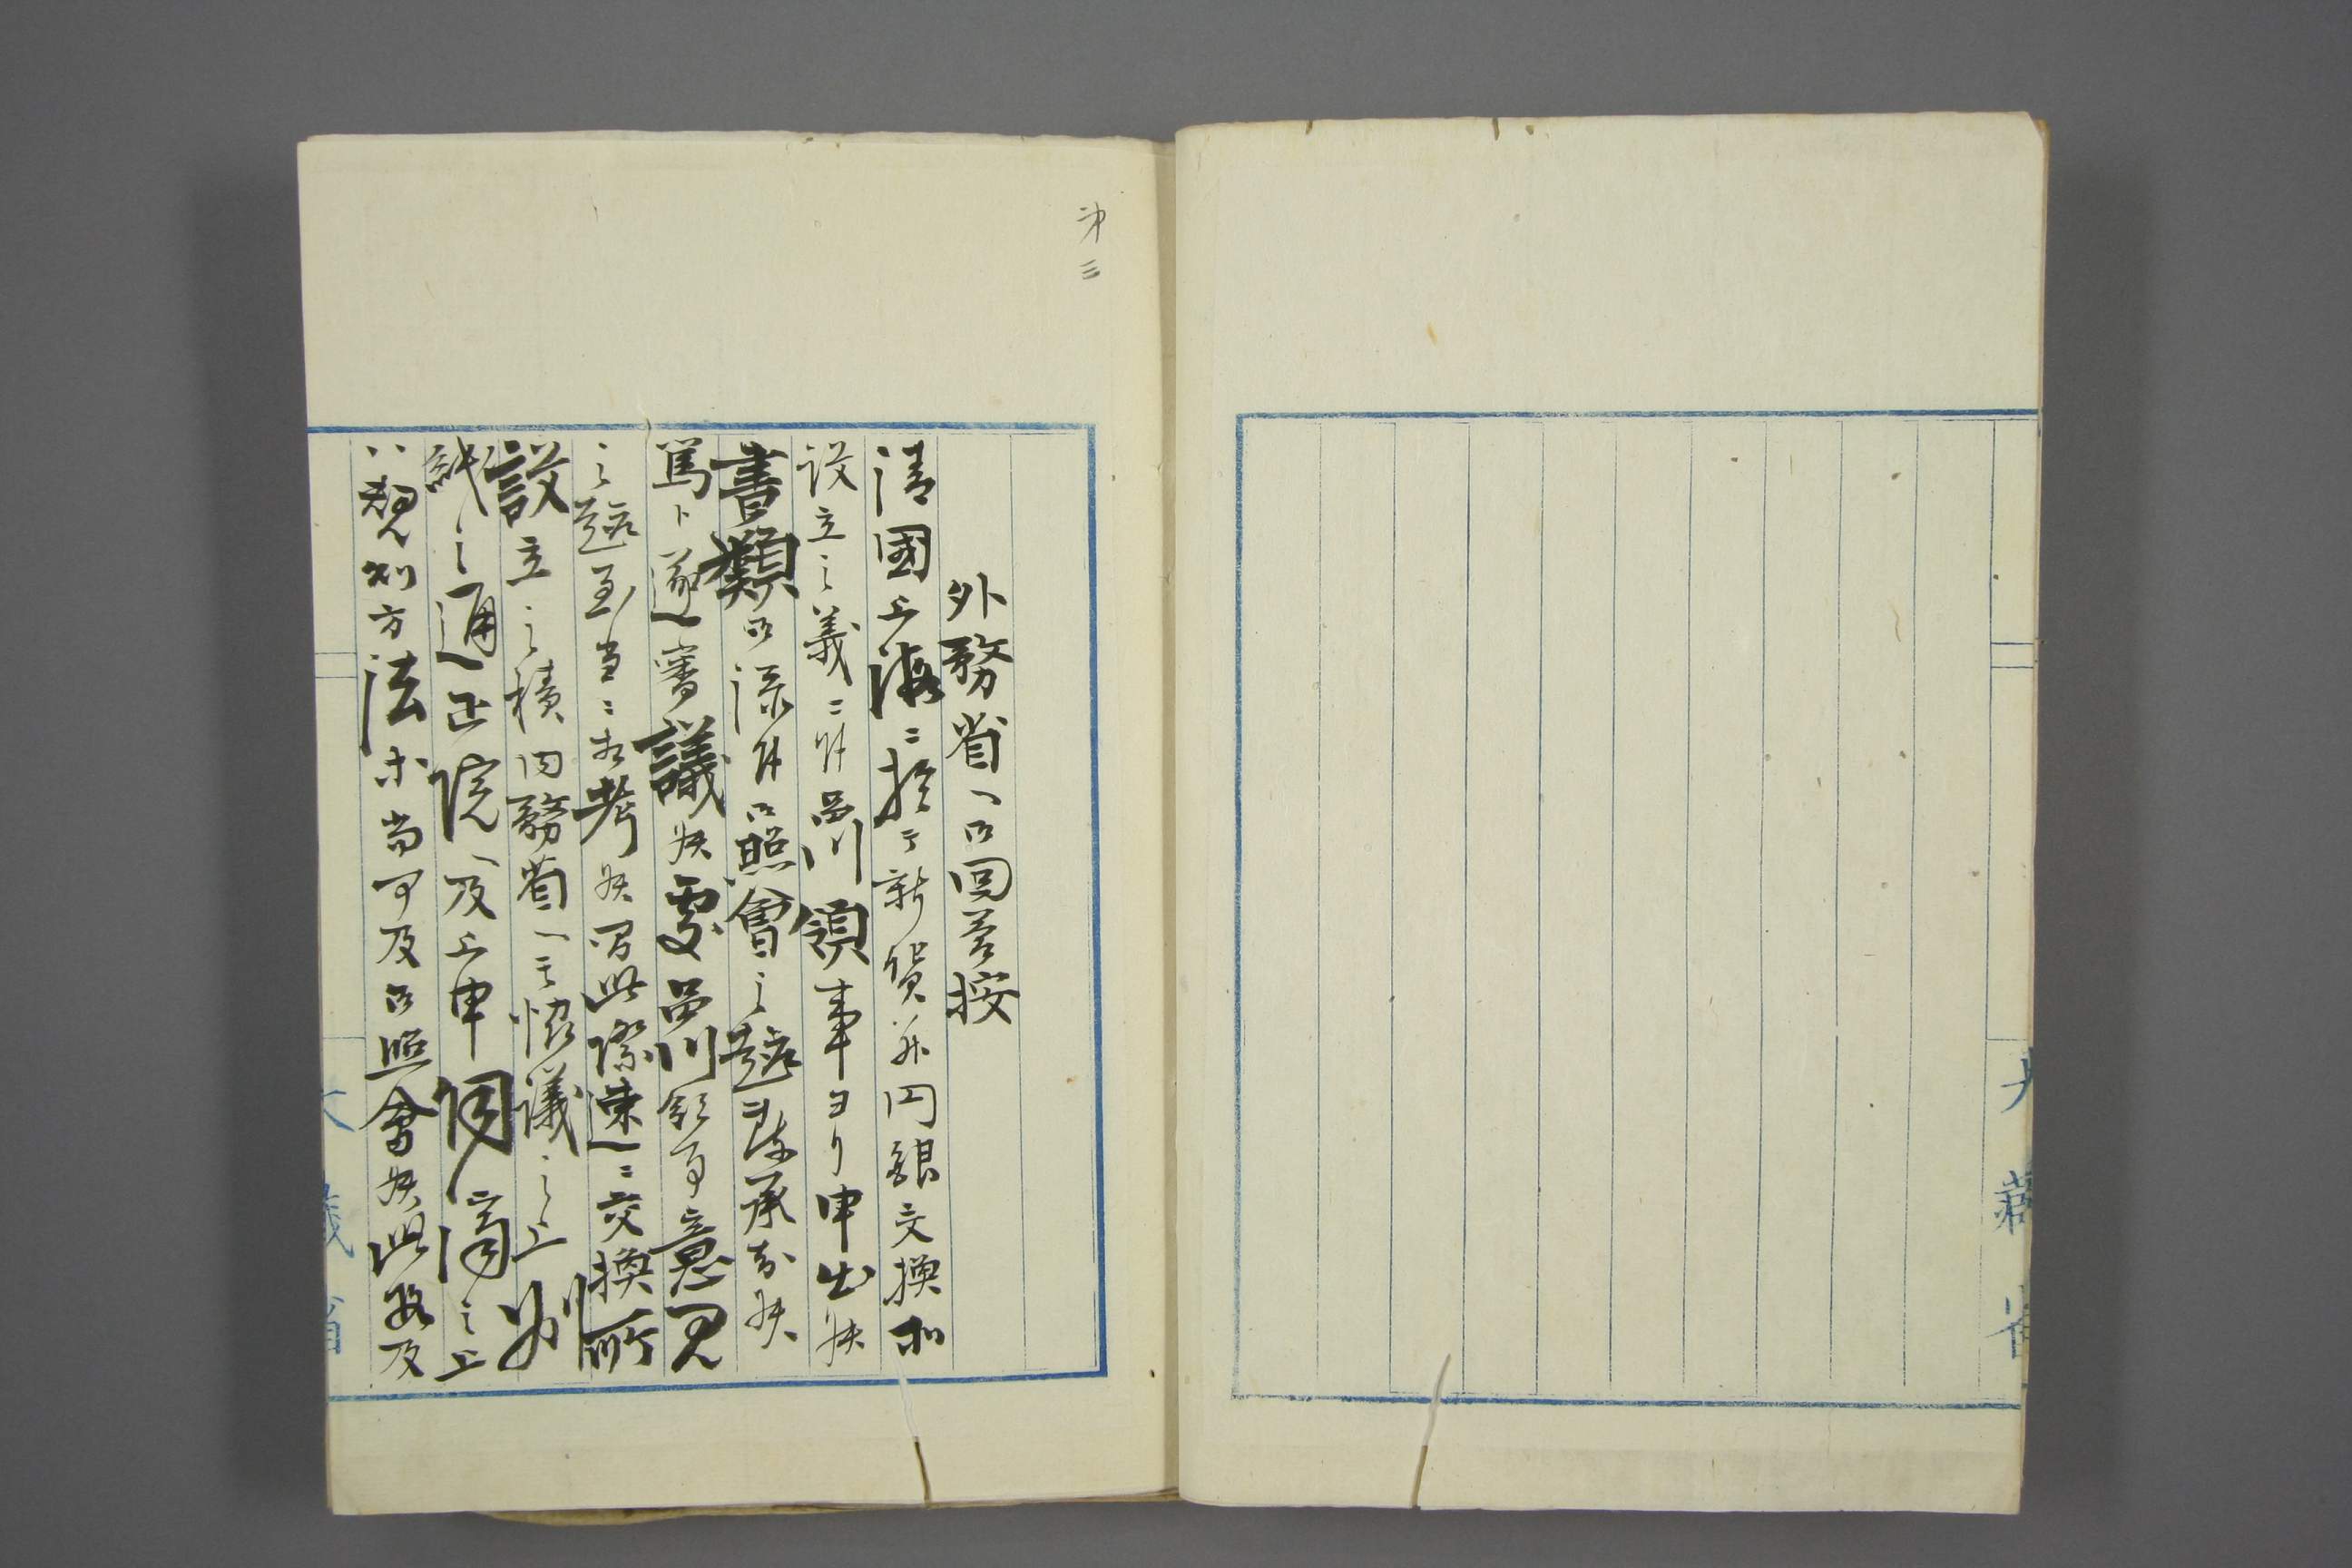 第三
外務省ヘ御回答按
清國上海ニ於テ新貨并円銀交換所
設立之義ニ付品川領事ヨリ申出候
書類御添付御照會之趣致承知候
篤ト遂審議候處品川領事意見
之趣至当ニ相考候間此際速ニ交換所
設立之積内務省ヘモ協議之上別
紙之通正院ヘ及上申伺済之上
ハ規則方法等尚可及御照會候此段及
大藏省
大藏省